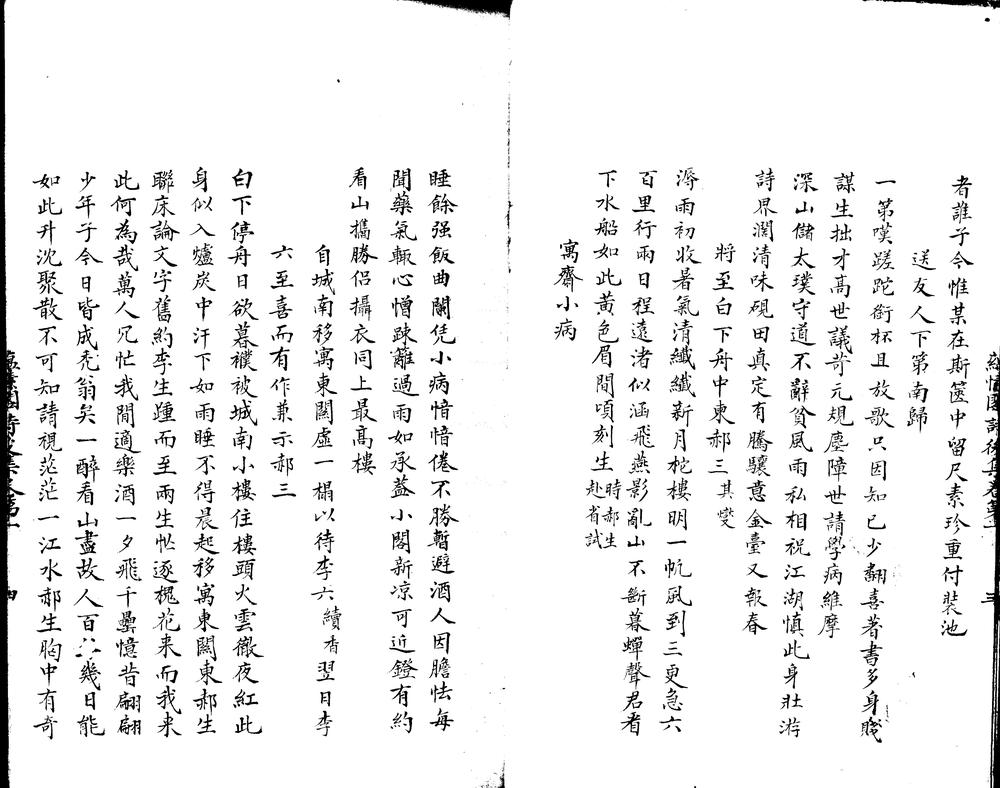 者誰子今惟某在斯篋中留尺素珍重付裝池
送友人下第南歸
一第嘆蹉跎銜杯且放歌只因知己少翻喜著書多身賤
謀生拙才高世議苛元規塵障世請學病維摩
深山儲太璞守道不辭貧風雨私相祝江湖慎此身壯游
詩界濶清味硯田真定有騰驤意金臺又報春
將至白下舟中柬郝三其燮
溽雨初收暑氣清纖纖新月柁樓明一帆風到三更急六
百里行兩日程遠渚似涵飛燕影亂山不斷暮蟬聲君看
下水船如此黃色眉間頃刻生時郝生赴省試
寓齋小病
睡餘强飯曲闌凭小病愔愔倦不勝暫避酒人因膽怯每
聞藥氣輙心憎踈離過雨如承葢小閣新凉可近鐙有約
看山攜勝侶攝衣同上最高樓
自城南移寓東關虛一榻以待李六續香翌日李
六至喜而有作兼示郝三
白下停舟日欲暮襆被城南小樓住樓頭火雲徹夜紅此
身似入爐炭中汗下如雨睡不得晨起移寓東關東郝生
聯床論文字舊約李生踵而至兩生忙逐槐花来而我来
此何為哉萬人冗忙我間適樂酒一夕飛千罍憶昔翩翩
少年子今日皆成禿翁矣一醉看山盡故人百幾日能
如此升沈聚散不可知請視茫茫一江水郝生胸中有奇